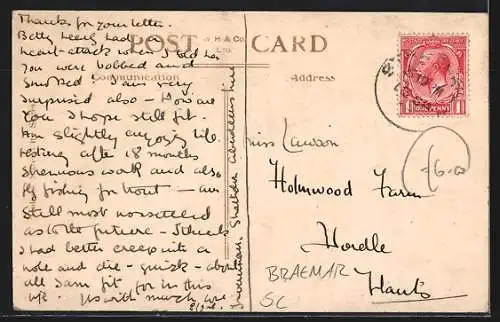 Thanks for your letter.
Betty nearly had
heart-attack when I told her
you were bobbed and
smoked! I am very
surprised also - How are
you I hope still fit.
Am slightly enjoying life.
resting after 18 months
strenuous work and also
fly fishing for trout - am
still most unsettled
as to the future - I think
I had better creep into a
hole and die - quick - about
all I am fit for in this
life. Yrs with much love
Inverernan. Strathdon Aberdeenshire
POST CARD
W H & Co.
Ltd.
Communication
Address
ONE PENNY
Miss Lawson
Holmwood Farm
Hordle
Hants
BRAEMAR
SC
6.00